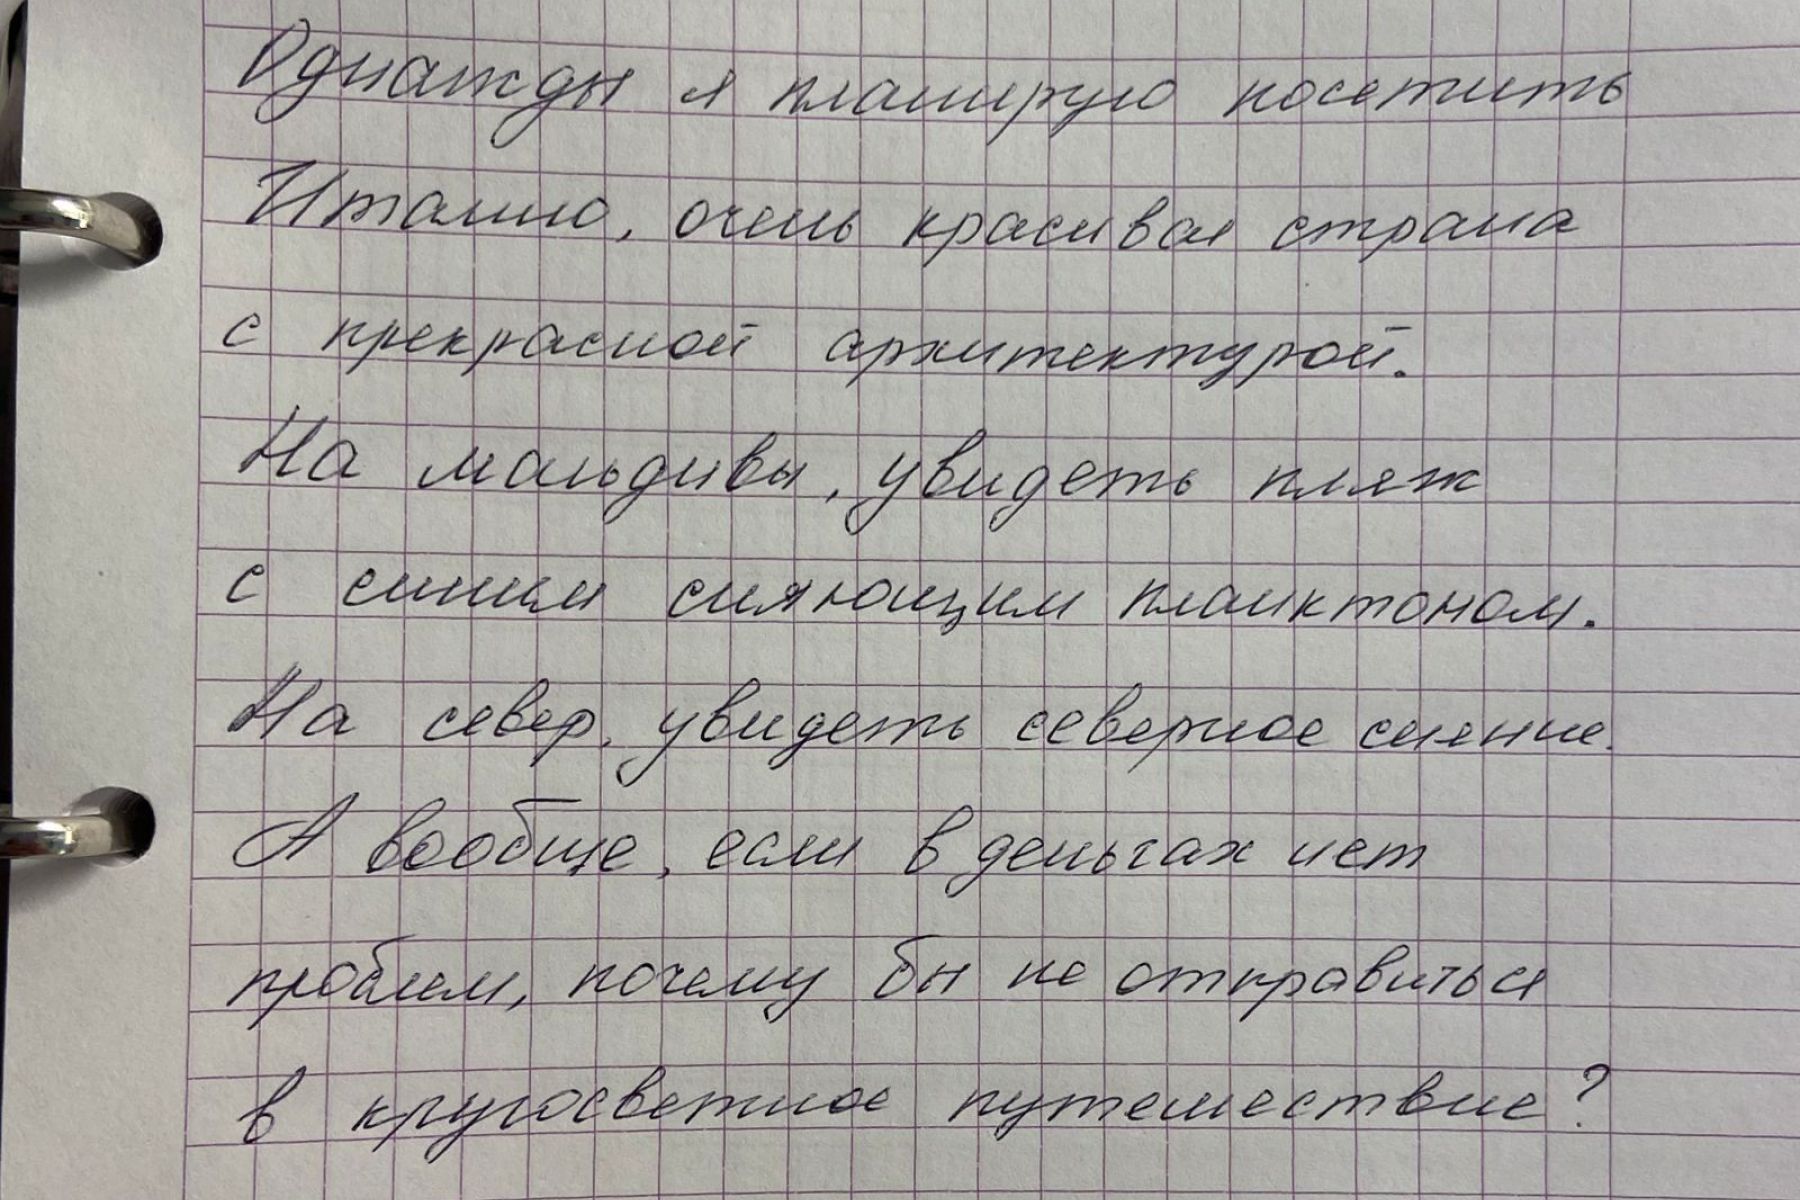 Однажды я планирую посетить
Италию, очень красивая страна
с прекрасной архитектурой.
На мальдивы, увидеть пляж
с синим сияющим планктоном.
На север, увидеть северное сияние.
А вообще, если в деньгах нет
проблем, почему бы не отправиться
в кругосветное путешествие?